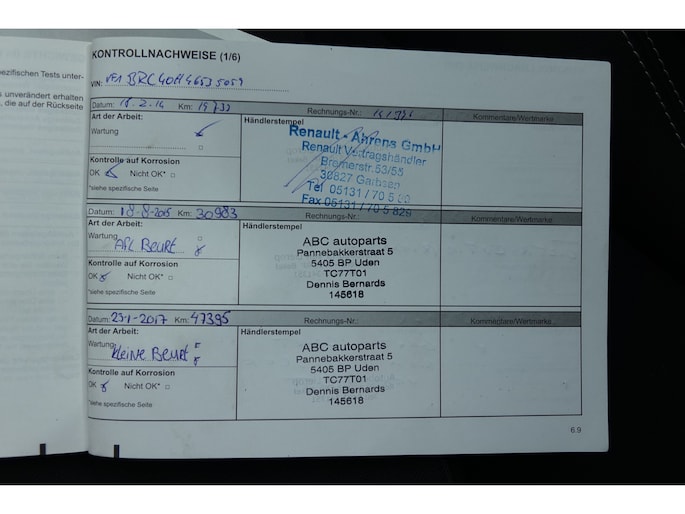 ezifischen Tests unter-
s unverändert erhalten
, die auf der Rückseite
KONTROLLNACHWEISE (1/6)
VIN:
Datum: 18.2.14 Km: 19732 Rechnungs-Nr.: Kommentare/Wertmarke
Art der Arbeit: Händlerstempel
Wartung
Kontrolle auf Korrosion
OK Nicht OK*
*siehe spezifische Seite
Renault - Ahrens GmbH
Renault Vertragshändler
Bremerstr. 53/55
30827 Garbsen
Tel 05131 / 70 5
Fax 05131 / 70 5 829
Datum: 18-8-2015 Km: 30983 Rechnungs-Nr.: Kommentare/Wertmarke
Art der Arbeit: Händlerstempel
Wartung
APK Beurt
Kontrolle auf Korrosion
OK Nicht OK*
*siehe spezifische Seite
ABC autoparts
Pannebakkerstraat 5
5405 BP Uden
TC77T01
Dennis Bernards
145618
Datum: 23-1-2017 Km: 47395 Rechnungs-Nr.: Kommentare/Wertmarke
Art der Arbeit: Händlerstempel
Wartung
kleine Beurt
Kontrolle auf Korrosion
OK Nicht OK*
*siehe spezifische Seite
ABC autoparts
Pannebakkerstraat 5
5405 BP Uden
TC77T01
Dennis Bernards
145618
6.9